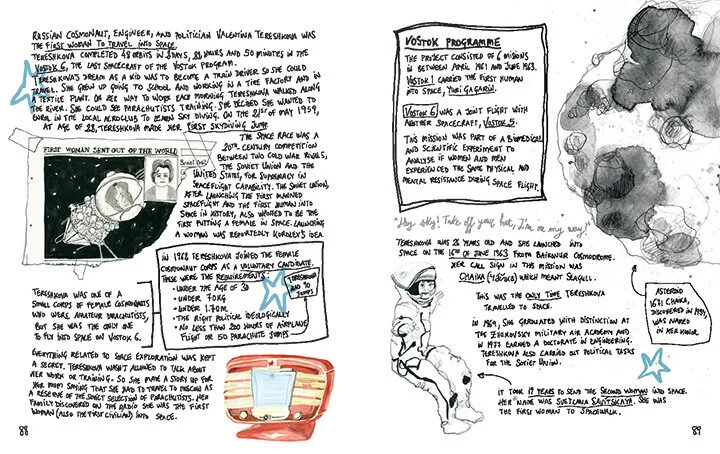 RUSSIAN COSMONAUT, ENGINEER, AND POLITICIAN VALENTINA TERESHKOVA WAS
THE FIRST WOMAN TO TRAVEL INTO SPACE.
TERESHKOVA COMPLETED 48 ORBITS IN 3 DAYS, 22 HOURS AND 50 MINUTES IN THE
VOSTOK 6, THE LAST SPACECRAFT OF THE VOSTOK PROGRAM.
TERESHKOVA'S DREAM AS A KID WAS TO BECOME A TRAIN DRIVER SO SHE COULD
TRAVEL. SHE GREW UP GOING TO SCHOOL AND WORKING IN A TIRE FACTORY AND IN
A TEXTILE PLANT. ON HER WAY TO WORK EACH MORNING TERESHKOVA WALKED ALONG
THE RIVER. SHE COULD SEE PARACHUTISTS TRAINING. SHE DECIDED SHE WANTED TO
ENROL IN THE LOCAL AEROCLUB TO LEARN SKY DIVING. ON THE 21ST OF MAY 1959,
AT AGE OF 22, TERESHKOVA MADE HER FIRST SKYDIVING JUMP
FIRST WOMAN SENT OUT OF THE WORLD
THE SPACE RACE WAS A
20TH CENTURY COMPETITION
BETWEEN TWO COLD WAR RIVALS,
THE SOVIET UNION AND THE
UNITED STATES, FOR SUPREMACY IN
SPACEFLIGHT CAPABILITY. THE SOVIET UNION,
AFTER LAUNCHING THE FIRST MANNED
SPACEFLIGHT AND THE FIRST HUMAN INTO
SPACE IN HISTORY, ALSO WANTED TO BE THE
FIRST PUTTING A FEMALE IN SPACE. LAUNCHING
A WOMAN WAS REPORTEDLY KOROLEV'S IDEA
IN 1962 TERESHKOVA JOINED THE FEMALE
COSMONAUT CORPS AS A VOLUNTARY CANDIDATE.
THESE WERE THE REQUIREMENTS:
· UNDER THE AGE OF 30
· UNDER 70KG
· UNDER 1.70M
· THE RIGHT POLITICAL IDEOLOGICALLY
· NO LESS THAN 200 HOURS OF AIRPLANE
FLIGHT OR 50 PARACHUTE JUMPS
TERESHKOVA
DID 90
JUMPS
TERESHKOVA WAS ONE OF A
SMALL CORPS OF FEMALE COSMONAUTS
WHO WERE AMATEUR PARACHUTISTS,
BUT SHE WAS THE ONLY ONE
TO FLY INTO SPACE ON VOSTOK 6.
EVERYTHING RELATED TO SPACE EXPLORATION WAS KEPT
A SECRET. TERESHKOVA WASN'T ALLOWED TO TALK ABOUT
HER WORK OR TRAINING. SO SHE MADE A STORY UP FOR
HER MUM SAYING THAT SHE HAD TO TRAVEL TO MOSCOW AS
A RESERVE OF THE SOVIET SELECTION OF PARACHUTISTS. HER
FAMILY DISCOVERED ON THE RADIO SHE WAS THE FIRST
WOMAN (ALSO THE FIRST CIVILIAN) INTO SPACE.
88
VOSTOK PROGRAMME
THE PROJECT CONSISTED OF 6 MISIONS
IN BETWEEN APRIL 1961 AND JUNE 1963.
VOSTOK 1 CARRIED THE FIRST HUMAN
INTO SPACE, YURI GAGARIN.
VOSTOK 6 WAS A JOINT FLIGHT WITH
ANOTHER SPACECRAFT, VOSTOK 5.
THIS MISSION WAS PART OF A BIOMEDICAL
AND SCIENTIFIC EXPERIMENT TO
ANALYSE IF WOMEN AND MEN
EXPERIENCED THE SAME PHYSICAL AND
MENTAL RESISTANCE DURING SPACE FLIGHT.
"Hey sky! Take off your hat, I'm on my way!"
TERESHKOVA WAS 26 YEARS OLD AND SHE LAUNCHED INTO
SPACE ON THE 16TH OF JUNE 1963 FROM BAIKONUR COSMODROME.
HER CALL SIGN IN THIS MISSION WAS
CHAIKA (Чайка) WHICH MEANT SEAGULL.
THIS WAS THE ONLY TIME TERESHKOVA
TRAVELLED TO SPACE.
IN 1969, SHE GRADUATED WITH DISTINCTION AT
THE ZHUKOVSKY MILITARY AIR ACADEMY AND
IN 1977 EARNED A DOCTORATE IN ENGINEERING.
TERESHKOVA ALSO CARRIED OUT POLITICAL TASKS
FOR THE SOVIET UNION.
ASTEROID
1671 CHAIKA,
DISCOVERED IN 1934,
WAS NAMED
IN HER HONOR
IT TOOK 19 YEARS TO SEND THE SECOND WOMAN INTO SPACE.
HER NAME WAS SVETLANA SAVITSKAYA. SHE WAS
THE FIRST WOMAN TO SPACEWALK.
89